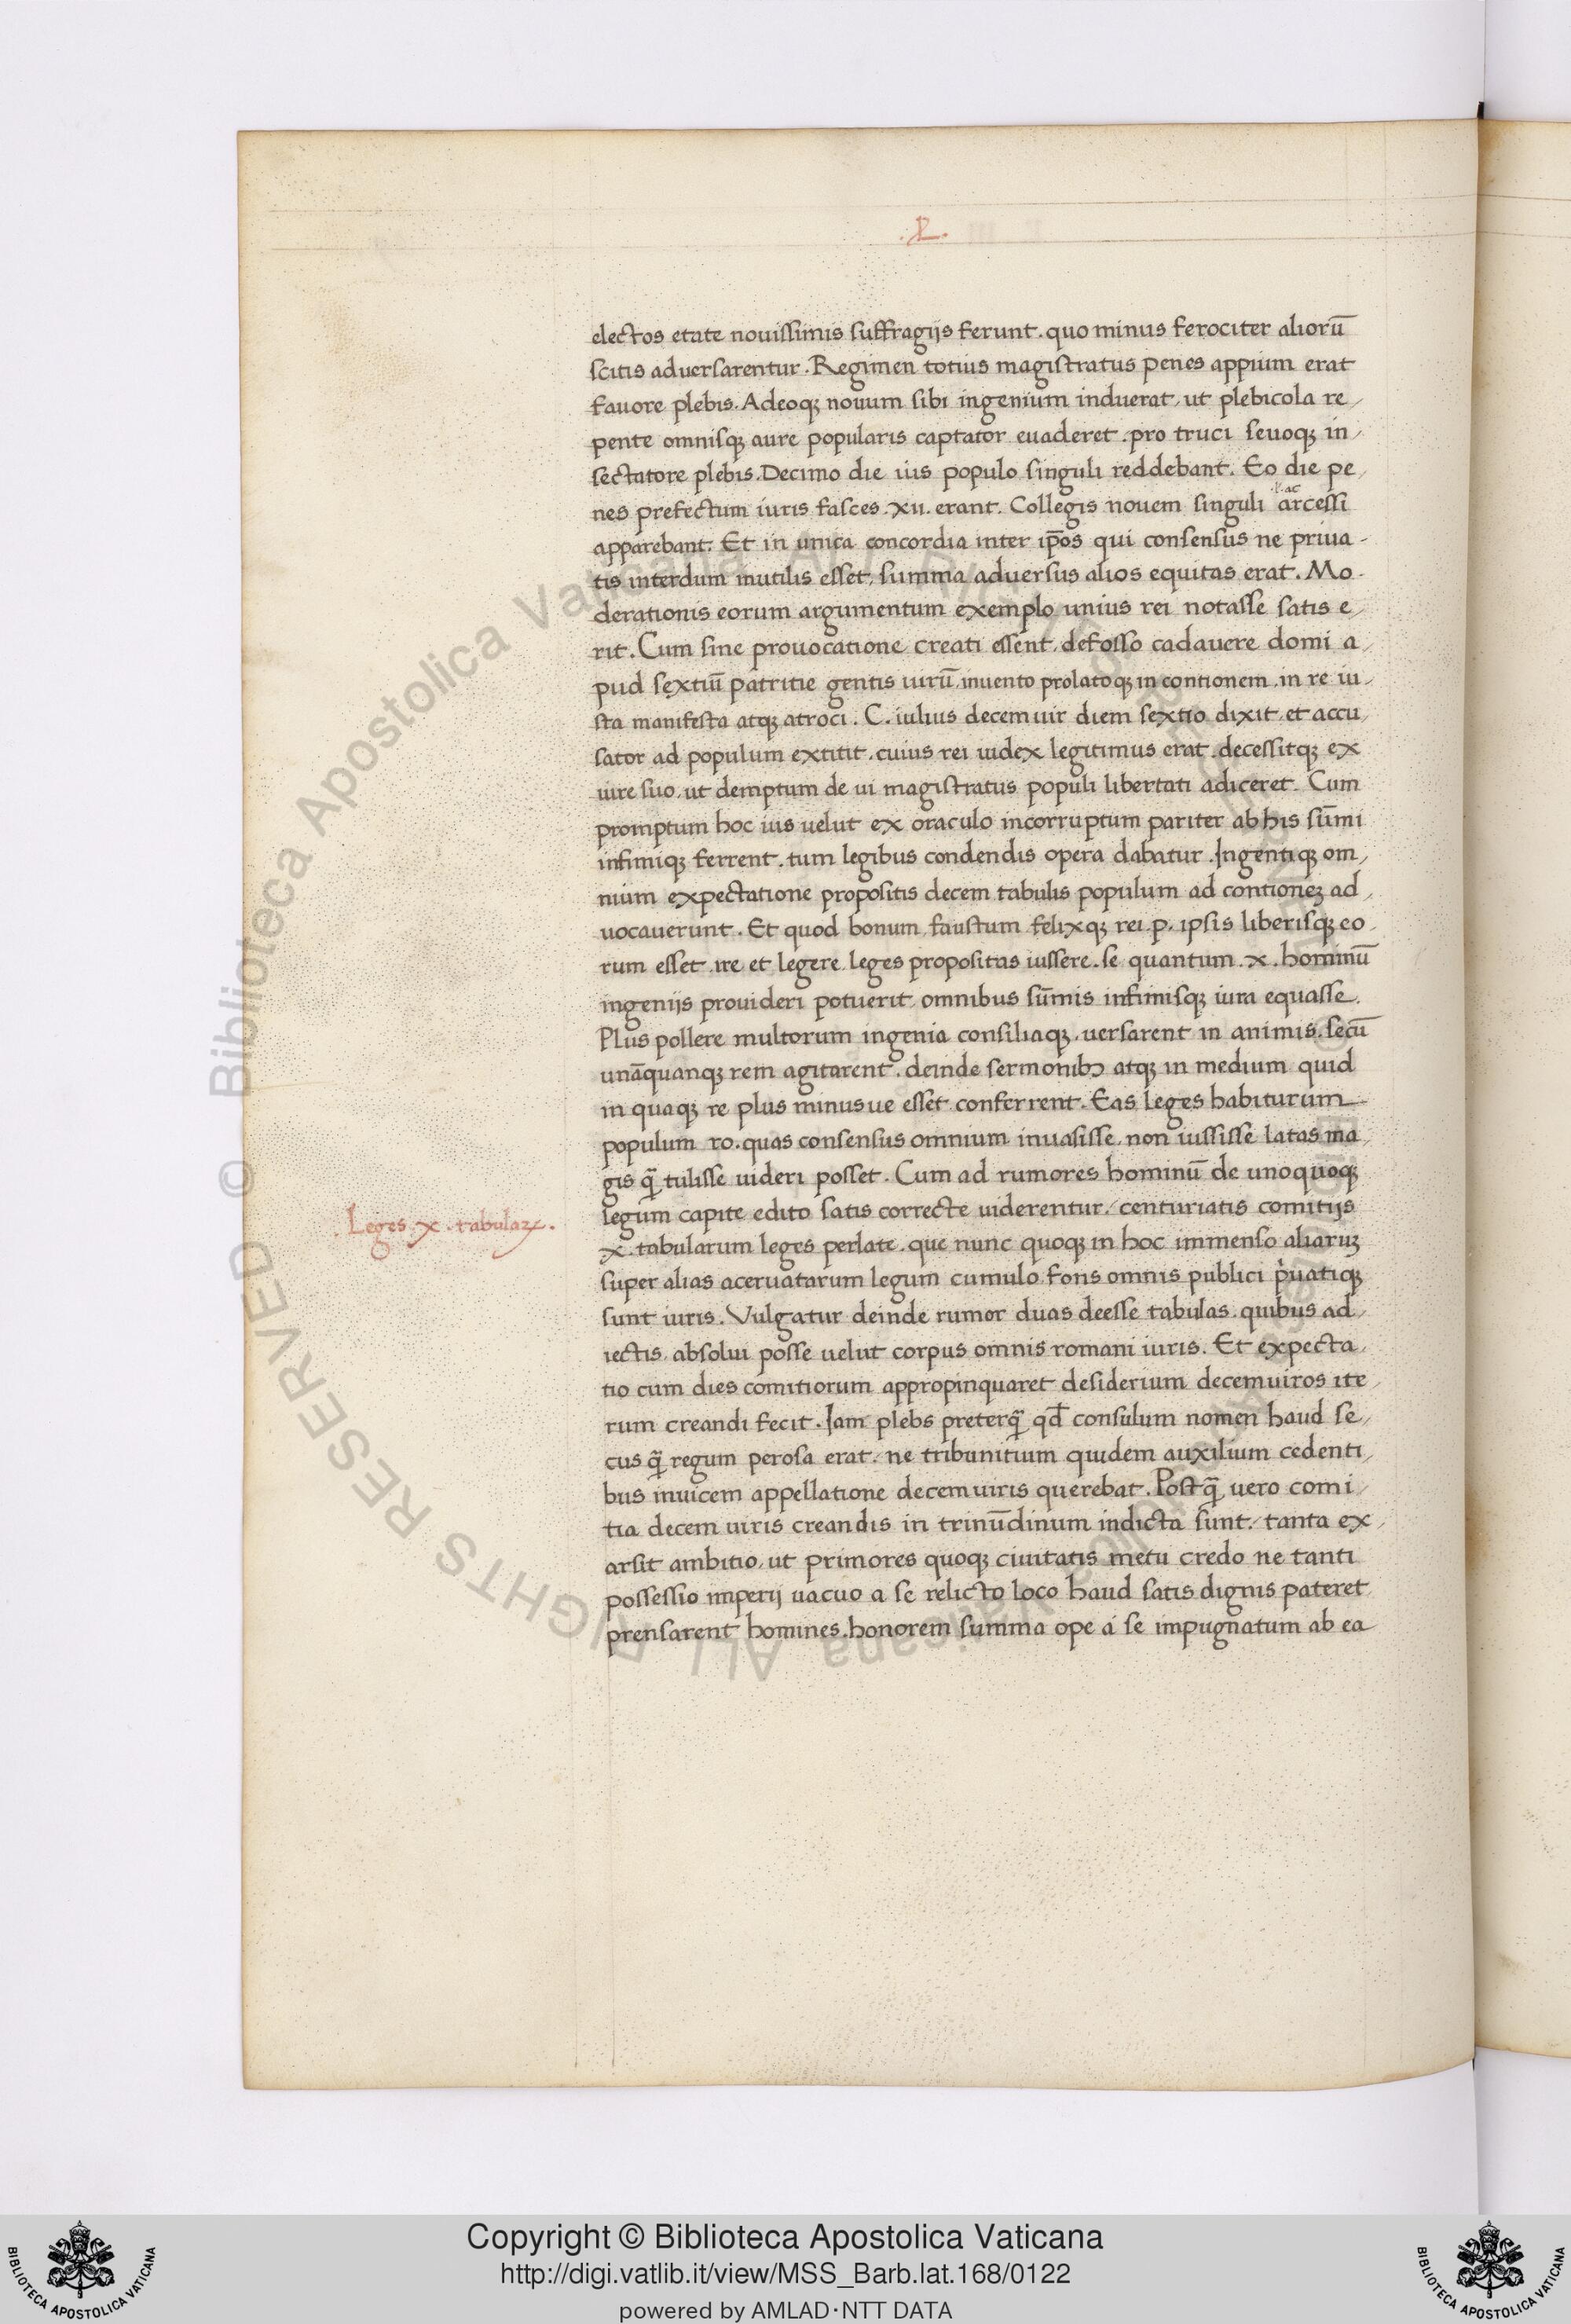 .L.
electos etate nouissimis suffragijs ferunt. quo minus ferociter alioru̅
scitis aduersarentur. Regimen totius magistratus penes appium erat
fauore plebis. Adeoqȝ nouum sibi ingenium induerat, ut plebicola re,
pente omnisqȝ aure popularis captator euaderet. pro truci seuoqȝ in,
sectatore plebis. Decimo die ius populo singuli reddebant. Eo die pe,
nes prefectum iuris fasces .xii. erant. Collegis nouem singuli arcessi
apparebant. Et in unica concordia inter ip̅os qui consensus ne priua-
tis interdum inutilis esset, summa aduersus alios equitas erat. Mo-
derationis eorum argumentum exemplo unius rei notasse satis e,
rit. Cum sine prouocatione creati essent, defosso cadauere domi a,
pud sextiu̅ patritie gentis uiru̅, inuento prolatoqȝ in contionem. in re iu,
sta manifesta atqȝ atroci. C. iulius decemuir diem sextio dixit, et accu,
sator ad populum extitit. cuius rei iudex legitimus erat. decessitqȝ ex
iure suo, ut demptum de ui magistratus populi libertati adiceret. Cum
promptum hoc ius uelut ex oraculo incorruptum pariter ab his su̅mi
infimiqȝ ferrent. tum legibus condendis opera dabatur. Ingentiqȝ om,
nium expectatione propositis decem tabulis populum ad contioneȝ ad,
uocauerunt. Et quod bonum, faustum, felixqȝ rei .p. ipsis liberisqȝ eo,
rum esset, ire et legere leges propositas iussere. se quantum .x. hominu̅
ingenijs prouideri potuerit, omnibus su̅mis infimisqȝ iura equasse.
Plus pollere multorum ingenia consiliaqȝ, uersarent in animis. secu̅
una̅quanqȝ rem agitarent. deinde sermonibꝫ atqȝ in medium quid
in quaqȝ re plus minusue esset conferrent. Eas leges habiturum
populum ro. quas consensus omnium inuasisse, non iussisse latas ma
gis q̅ tulisse uideri posset. Cum ad rumores hominu̅ de unoquoqȝ
legum capite edito satis correcte uiderentur, centuriatis comitijs
Leges .x. tabulaꝝ.
.x. tabularum leges perlate. que nunc quoqȝ in hoc immenso aliaruȝ
super alias aceruatarum legum cumulo, fons omnis publici p̍uatiqȝ
sunt iuris. Vulgatur deinde rumor duas deesse tabulas. quibus ad,
iectis, absolui posse uelut corpus omnis romani iuris. Et expecta,
tio cum dies comitiorum appropinquaret desiderium decemuiros ite,
rum creandi fecit. Iam plebs preterq̅ qd̅ consulum nomen haud se,
cus q̅ regum perosa erat, ne tribunitium quidem auxilium cedenti,
bus inuicem appellatione decemuiris querebat. Postq̅ uero comi,
tia decem uiris creandis in trinu̅dinum indicta sunt, tanta ex,
arsit ambitio, ut primores quoqȝ ciuitatis metu credo ne tanti
possessio imperij uacuo a se relicto loco haud satis dignis pateret
prensarent homines. honorem summa ope a se impugnatum ab ea
© Biblioteca Apostolica Vaticana ALL RIGHTS RESERVED
Copyright © Biblioteca Apostolica Vaticana
http://digi.vatlib.it/view/MSS_Barb.lat.168/0122
powered by AMLAD·NTT DATA
BIBLIOTECA APOSTOLICA VATICANA
BIBLIOTECA APOSTOLICA VATICANA